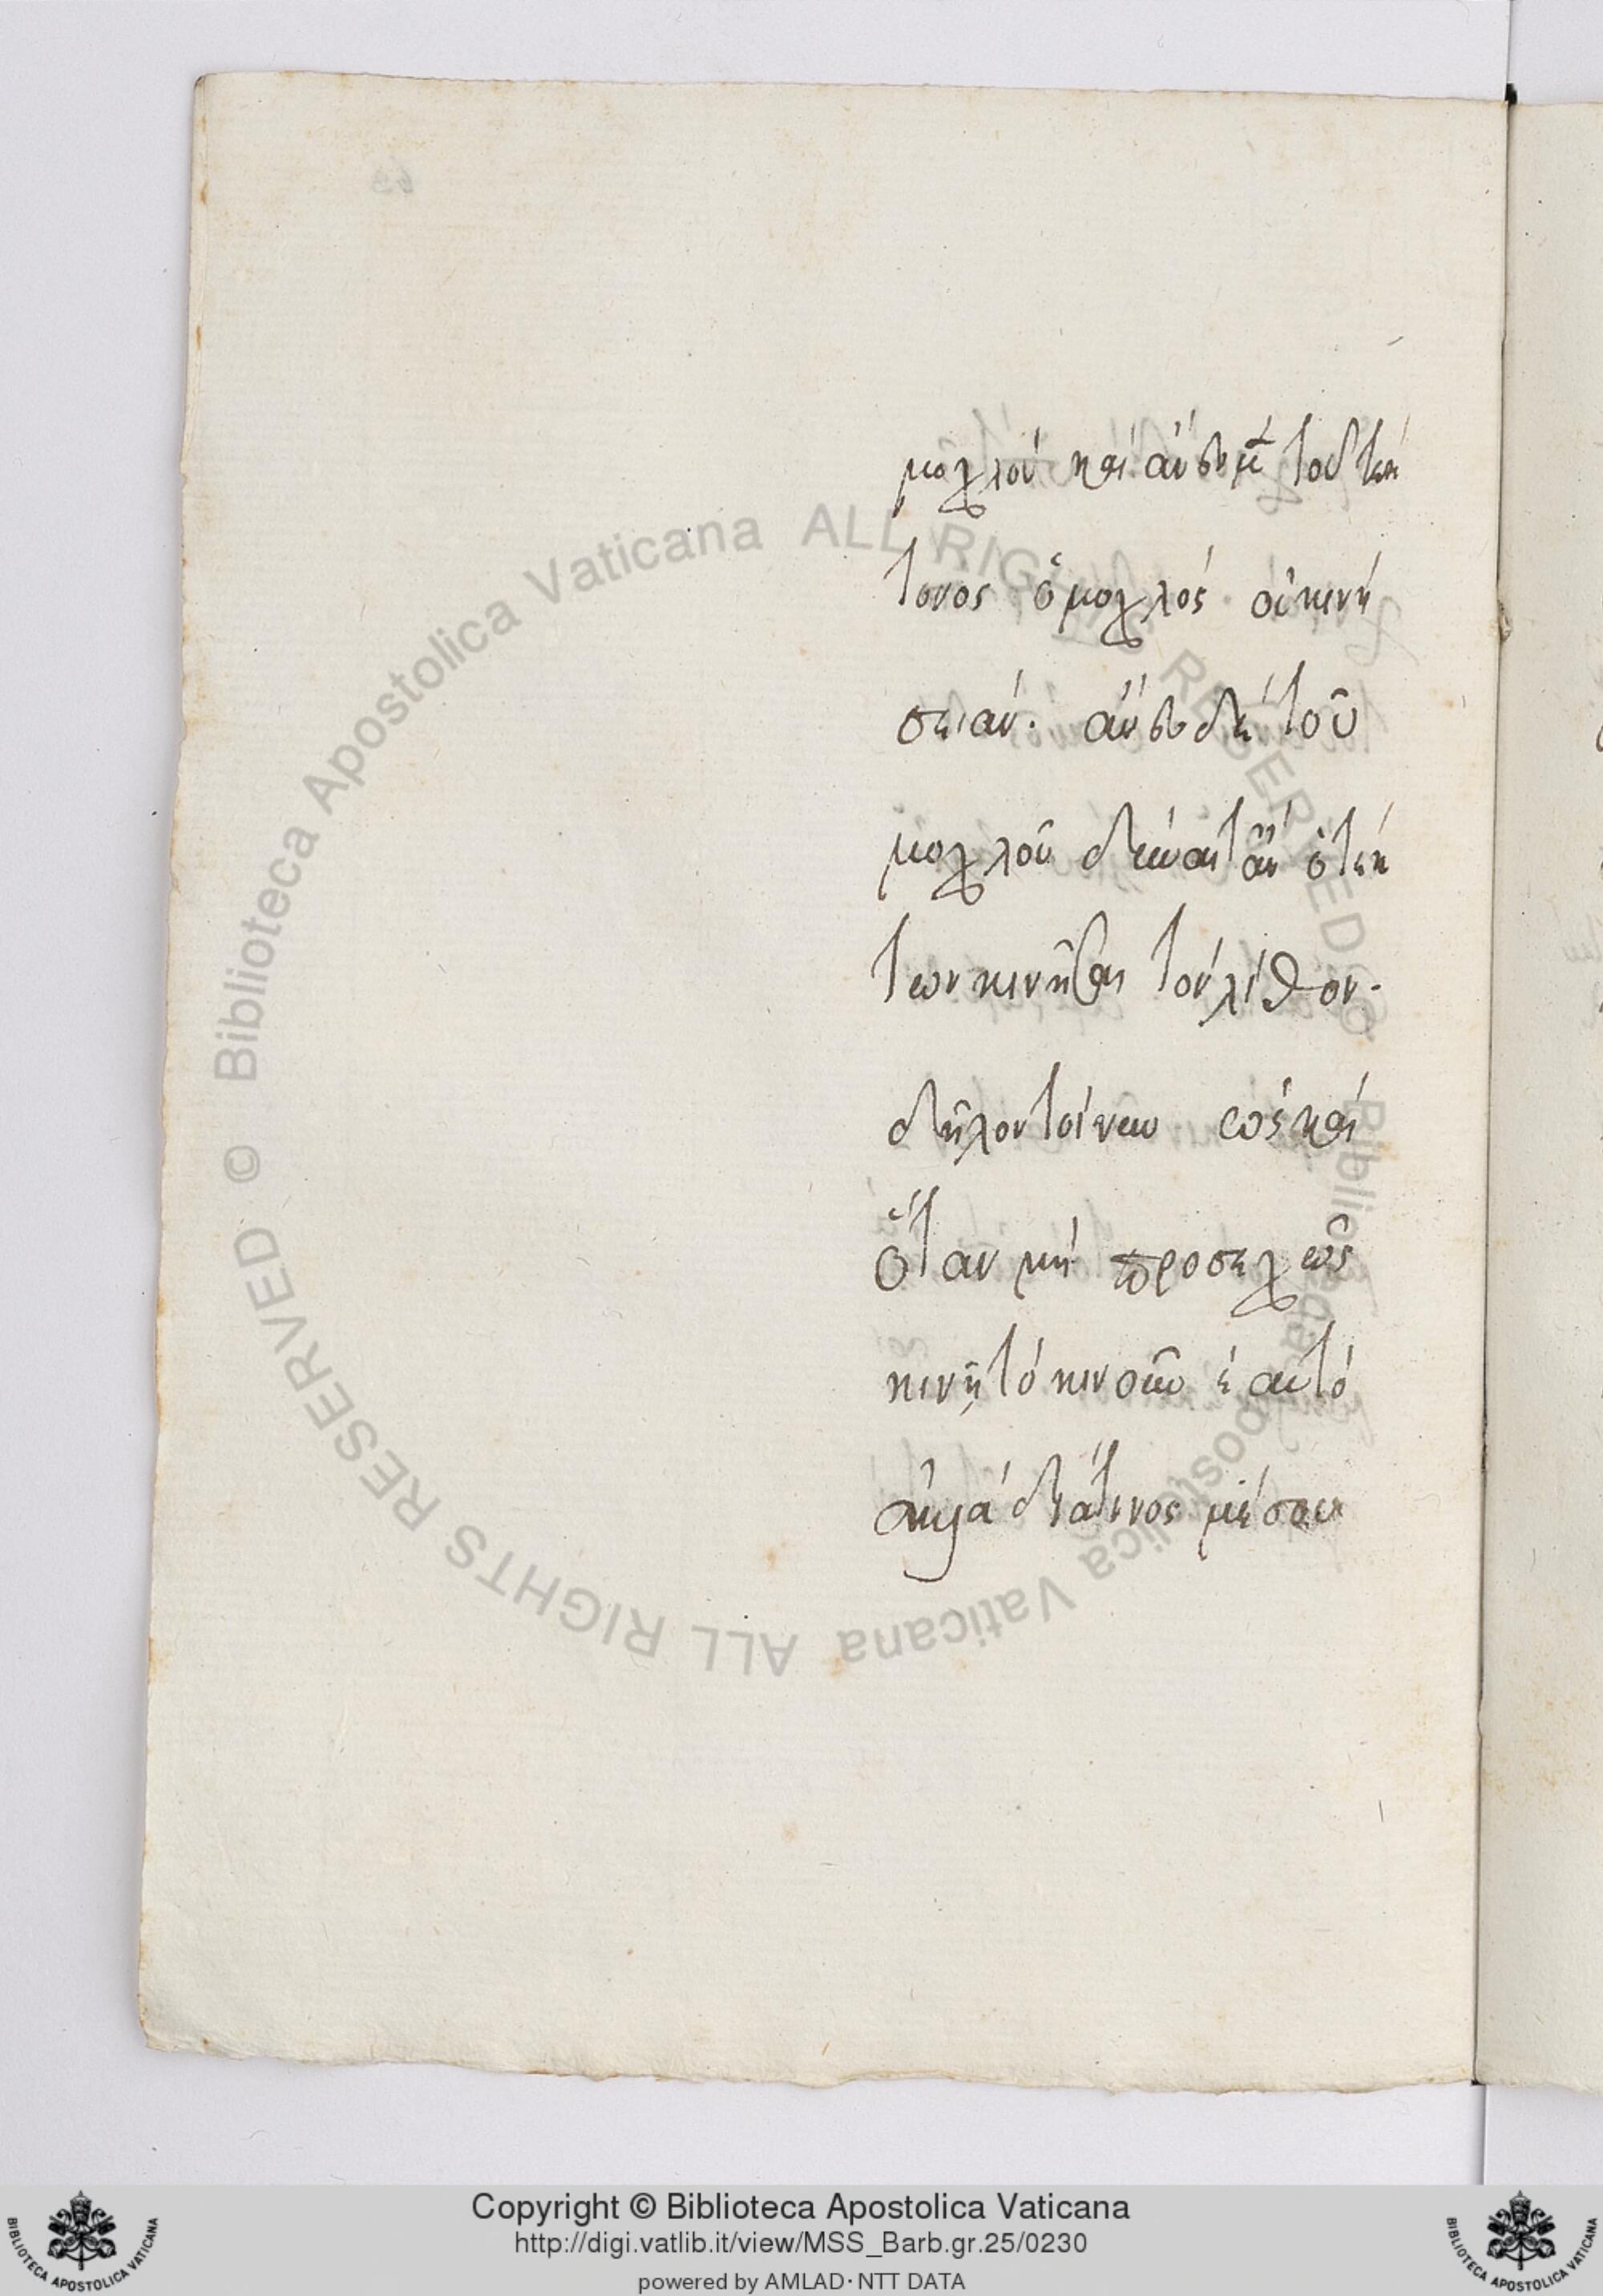 μοχλόν καὶ ἄνευ μὲν τοῦ κι
τονος ὁ μοχλός οὐ κινή
σει ἄν. ἄνευ δὲ τοῦ
μοχλοῦ δύναιτ ἄν ὁ κι
των κινῆσαι τὸν λίθον.
δῆλον τοίνυν ὡς καὶ
ὅταν μὴ προσεχῶς
κινῇ τὸ κινοῦν ἑαυτό
ἀλλὰ διά τινος μέσου
Biblioteca Apostolica Vaticana ALL RIGHTS RESERVED ©
Biblioteca Apostolica Vaticana ALL RIGHTS RESERVED ©
Copyright © Biblioteca Apostolica Vaticana
http://digi.vatlib.it/view/MSS_Barb.gr.25/0230
powered by AMLAD·NTT DATA
BIBLIOTECA APOSTOLICA VATICANA
BIBLIOTECA APOSTOLICA VATICANA